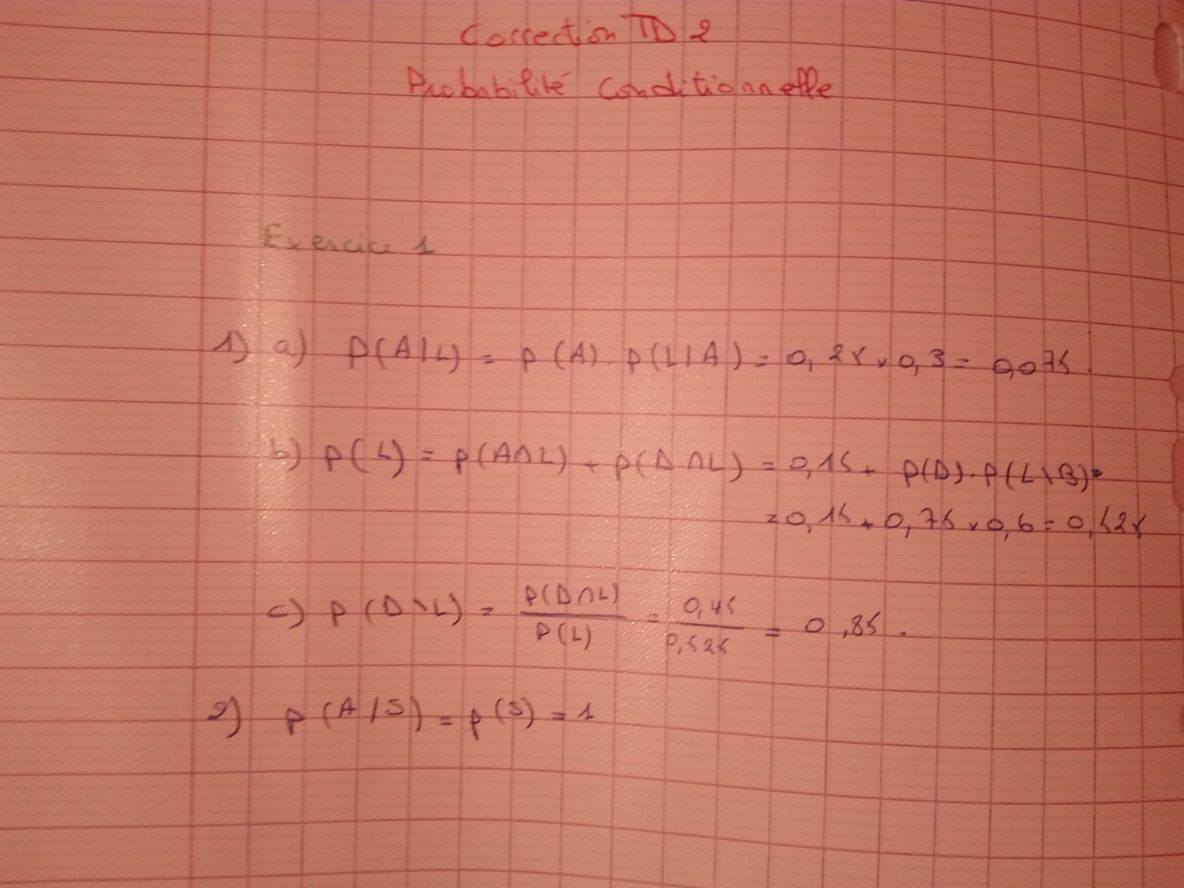 Correction TD 2
Probabilité Conditionnelle
Exercice 1
1) a) P(A|L) = p(A). p(L|A) = 0,25 x 0,3 = 0,075
b) P(L) = p(A∩L) + p(D∩L) = 0,15 + p(D). p(L\B) =
= 0,15 + 0,75 x 0,6 = 0,525
c) P(D\L) = P(D∩L) / P(L) = 0,45 / 0,525 = 0,85.
2) P(A/S) = p(S) = 1